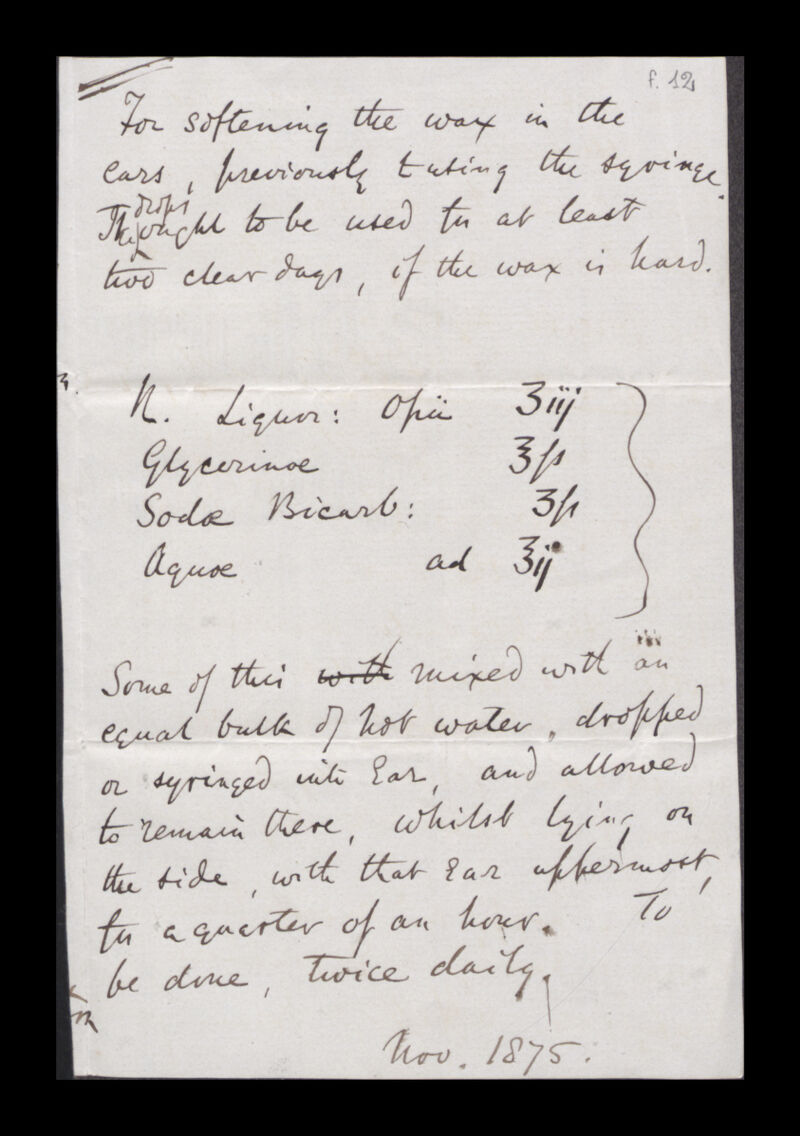 f. 12
For softening the wax in the
ears, previously to using the syringe.
The drops ought to be used for at least
two clear days, if the wax is hard.
R. Liquor: Opii ʒiij
Glycerinae ʒſs
Sodae Bicarb: ʒſs
Aquae ad ℥ij
Some of this with mixed with an
equal bulk of hot water, dropped
or syringed into Ear, and allowed
to remain there, whilst lying on
the side, with that Ear uppermost,
for a quarter of an hour. To
be done, twice daily.
Nov. 1875.